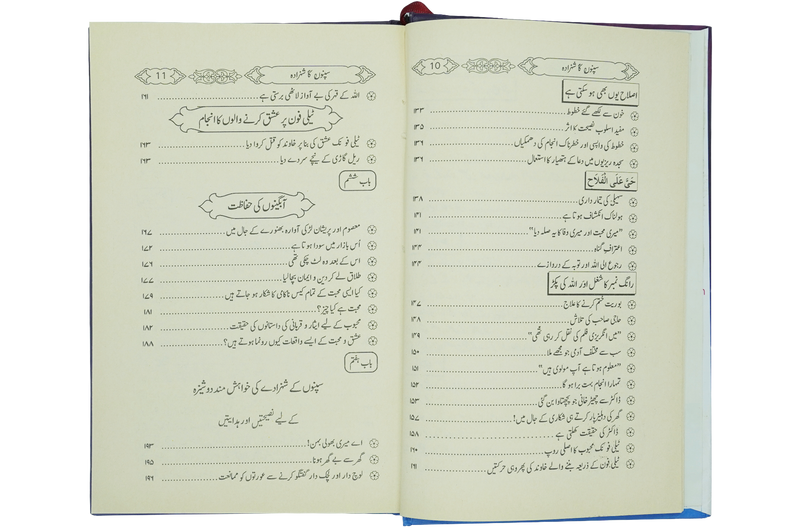 سپنوں کا شہزادہ 10
اصلاح یوں بھی ہو سکتی ہے
خون سے لکھے گئے خطوط ۱۳۳
مفید اسلوب نصیحت کا اثر ۱۳۵
خطوط کی واپسی اور خطرناک انجام کی دھمکیاں ۱۳۶
سجدہ ریزیوں میں دعا کے ہتھیار کا استعمال ۱۳۶
حَیَّ عَلَی الْفَلَاحِ
سہیلی کی تیمارداری ۱۳۸
ہولناک انکشاف ہوتا ہے ۱۴۱
"میری محبت اور میری وفا کا یہ صلہ دیا" ۱۴۱
اعترافِ گناہ ۱۴۴
رجوع الی اللہ اور توبہ کے دروازے ۱۴۴
رانگ نمبر کا شغل اور اللہ کی پکڑ
بوریت ختم کرنے کا علاج ۱۴۷
حاجی صاحب کی تلاش ۱۴۸
"میں انگریزی فلم کی نقل کر رہی تھی" ۱۴۹
سب سے مختلف آدمی جو مجھے ملا ۱۵۰
"معلوم ہوتا ہے آپ مولوی ہیں" ۱۵۱
تمہارا انجام بہت برا ہو گا ۱۵۲
ڈاکٹر سے چھیڑ خانی جو پچھتاوا بن گئی ۱۵۳
گھر کی دہلیز پار کرتے ہی شکاری کے جال میں! ۱۵۷
ڈاکٹر کی حقیقت کھلتی ہے ۱۵۸
ٹیلی فونک محبوب کا اصلی روپ ۱۶۰
ٹیلی فون کے ذریعہ بننے والے خاوند کی پھر وہی حرکتیں ۱۶۱
سپنوں کا شہزادہ 11
اللہ کے قہر کی بے آواز لاٹھی برستی ہے ۱۶۱
ٹیلی فون پر عشق کرنے والوں کا انجام
ٹیلی فونک عشق کی بنا پر خاوند کو قتل کروا دیا ۱۶۳
ریل گاڑی کے نیچے سر دے دیا ۱۶۳
باب ششم
آبگینوں کی حفاظت
معصوم اور پریشان لڑکی آوارہ بھنورے کے جال میں ۱۶۷
اُس بازار میں سودا ہوتا ہے ۱۷۴
اس کے بعد وہ لٹ چکی تھی ۱۷۶
طلاق لے کر دین و ایمان بچا لیا ۱۷۷
کیا ایسی محبت کے تمام کیس ناکامی کا شکار ہو جاتے ہیں ۱۷۹
محبت ہے کیا چیز؟ ۱۸۱
محبوب کے لیے ایثار و قربانی کی داستانوں کی حقیقت ۱۸۲
عشق و محبت کے ایسے واقعات کیوں رونما ہوتے ہیں؟ ۱۸۸
باب ہفتم
سپنوں کے شہزادے کی خواہش مند دوشیزہ
کے لیے نصیحتیں اور ہدایتیں
اے میری بھولی بہن! ۱۹۳
گھر سے بے گھر ہونا ۱۹۵
لوچ دار اور لچک دار گفتگو کرنے سے عورتوں کو ممانعت ۱۹۶